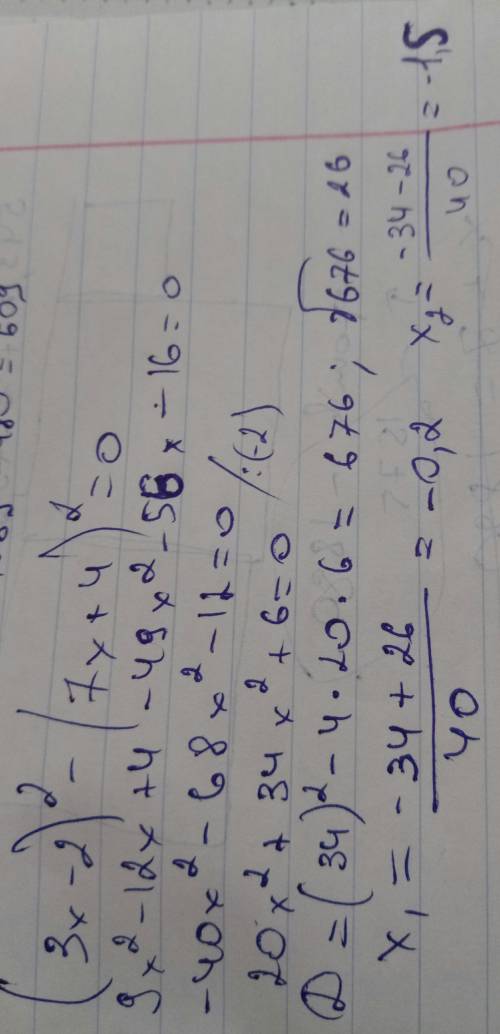 (3x-2)² - (7x+4)² = 0
9x² - 12x + 4 - 49x² - 56x - 16 = 0
-40x² - 68x² - 12 = 0 /:(-2)
20x² + 34x² + 6 = 0
D = (34)² - 4·20·6 = 676; √676 = 26
x₁ = (-34+26)/40 = -0,2 x₂ = (-34-26)/40 = -1,5